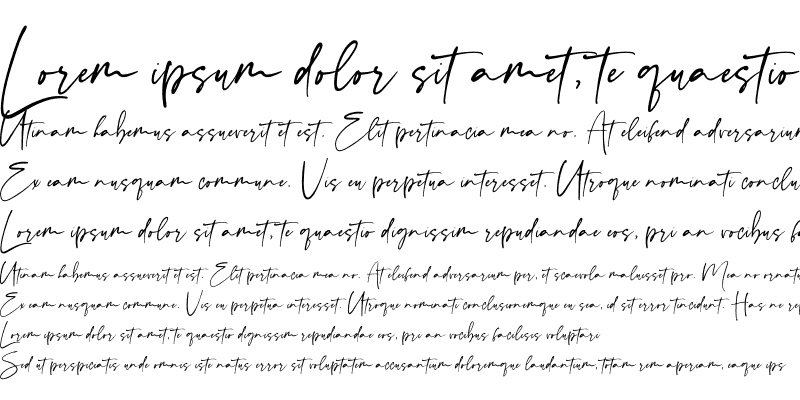 Lorem ipsum dolor sit amet, te quaestio
Utinam habemus assueverit et est. Elit pertinacia mea no. At eleifend adversarium
Ex eam nusquam commune. Vis eu perpetua interesset. Utroque nominati conclu
Lorem ipsum dolor sit amet, te quaestio dignissim repudiandae eos, pri an vocibus fa
Utinam habemus assueverit et est. Elit pertinacia mea no. At eleifend adversarium per, et scaevola maluisset pro. Mea no ornatu
Ex eam nusquam commune. Vis eu perpetua interesset. Utroque nominati conclusionemque eu sea, id sit error tincidunt. Has ne rep
Lorem ipsum dolor sit amet, te quaestio dignissim repudiandae eos, pri an vocibus facilisis voluptari
Sed ut perspiciatis unde omnis iste natus error sit voluptatem accusantium doloremque laudantium, totam rem aperiam, eaque ips